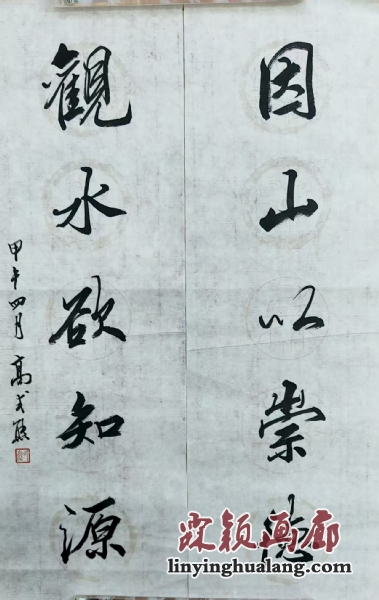 因山以崇德
觀水欲知源
甲午四月
高式熊
霖颖画廊
linyinghualang.com